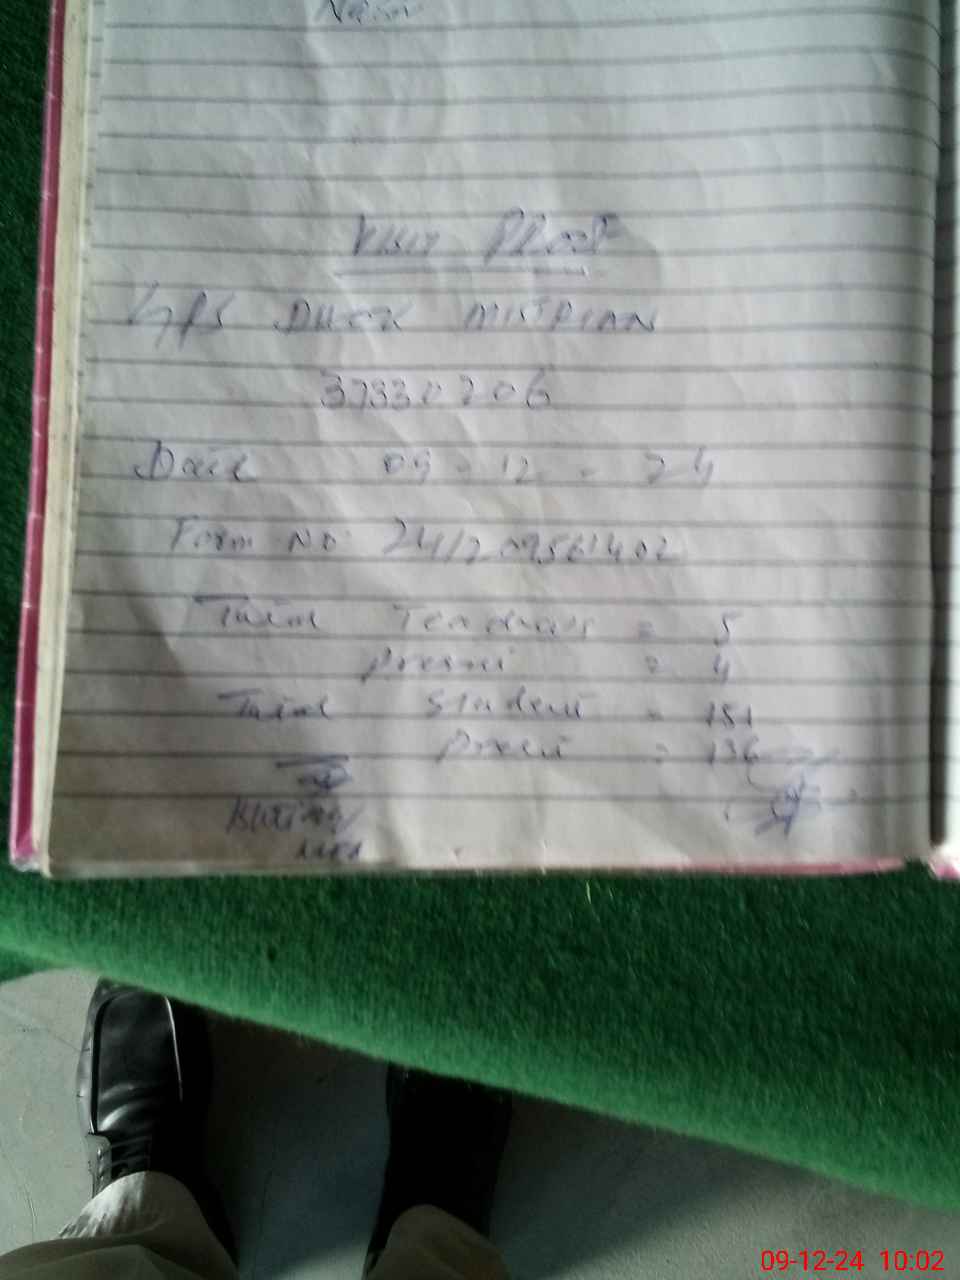 Visit Proof
GPS DHOK MISTRIAN
37330206
Date 09-12-24
Form NO. 24/1209561402
Total Teachers = 5
Present = 4
Total Student = 151
Present = 136
09-12-24 10:02